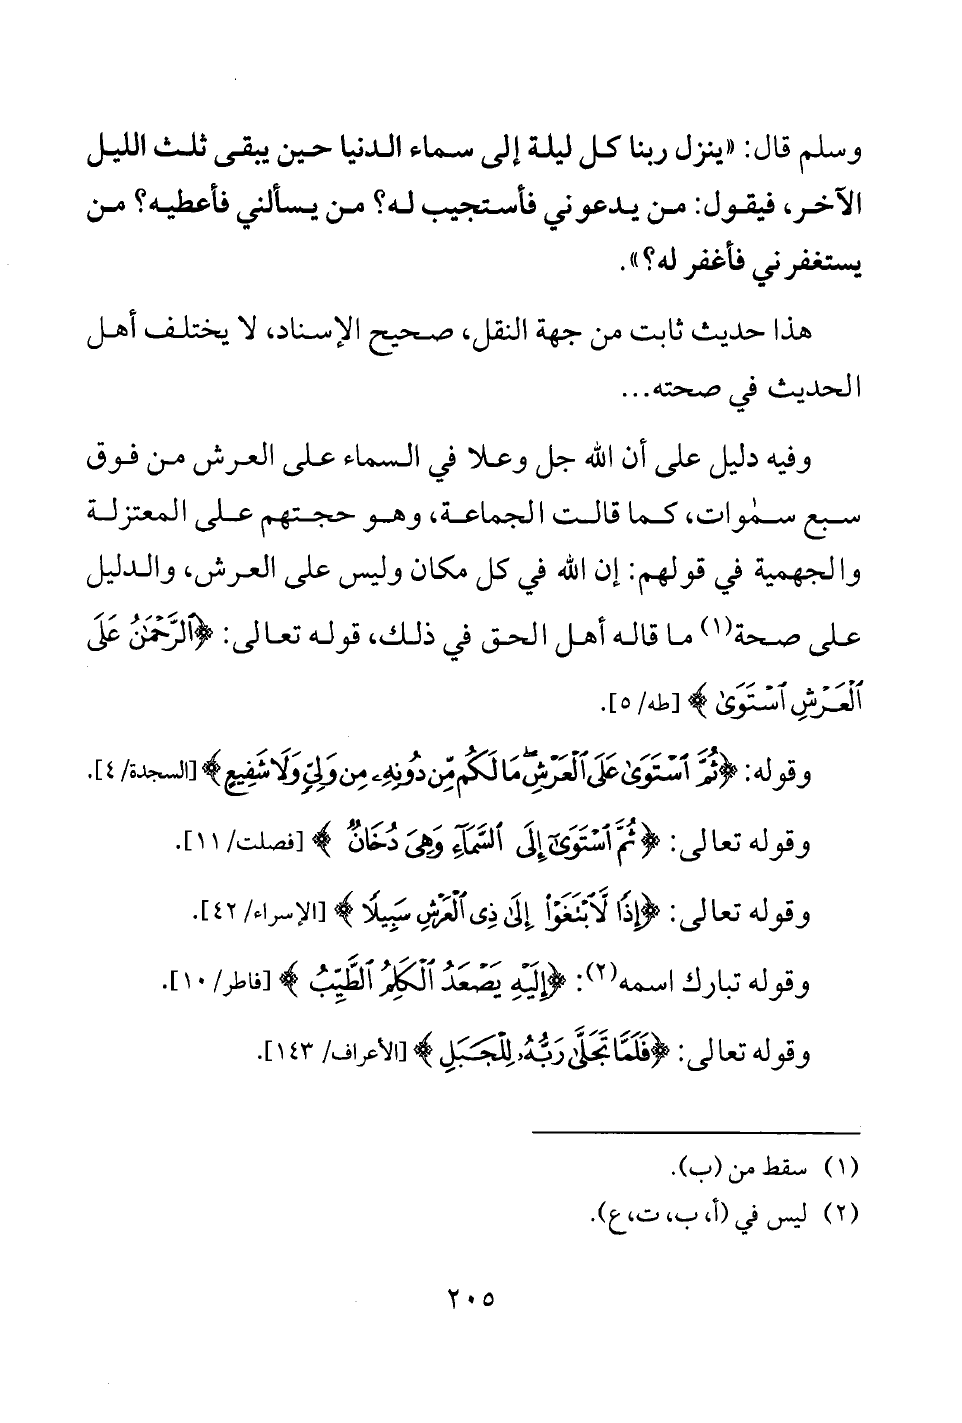 وسلم قال: «ينزل ربنا كل ليلة إلى سماء الدنيا حين يبقى ثلث الليل
الآخر، فيقول: من يدعوني فأستجيب له؟ من يسألني فأعطيه؟ من
يستغفرني فأغفر له؟».
هذا حديث ثابت من جهة النقل، صحيح الإسناد، لا يختلف أهل
الحديث في صحته...
وفيه دليل على أن الله جل وعلا في السماء على العرش من فوق
سبع سمٰوات، كما قالت الجماعة، وهو حجتهم على المعتزلة
والجهمية في قولهم: إن الله في كل مكان وليس على العرش، والدليل
على صحة(١) ما قاله أهل الحق في ذلك، قوله تعالى: ﴿ٱلرَّحْمَٰنُ عَلَى
ٱلْعَرْشِ ٱسْتَوَىٰ ﴾ [طه/ ٥].
وقوله: ﴿ثُمَّ ٱسْتَوَىٰ عَلَى ٱلْعَرْشِۖ مَا لَكُم مِّن دُونِهِۦ مِن وَلِيٍّ وَلَا شَفِيعٍ﴾ [السجدة/ ٤].
وقوله تعالى: ﴿ثُمَّ ٱسْتَوَىٰٓ إِلَى ٱلسَّمَآءِ وَهِىَ دُخَانٌ ﴾ [فصلت/ ١١].
وقوله تعالى: ﴿إِذًا لَّٱبْتَغَوْا۟ إِلَىٰ ذِى ٱلْعَرْشِ سَبِيلًا ﴾ [الإسراء/ ٤٢].
وقوله تبارك اسمه(٢): ﴿إِلَيْهِ يَصْعَدُ ٱلْكَلِمُ ٱلطَّيِّبُ ﴾ [فاطر/ ١٠].
وقوله تعالى: ﴿فَلَمَّا تَجَلَّىٰ رَبُّهُۥ لِلْجَبَلِ ﴾ [الأعراف/ ١٤٣].
(١) سقط من (ب).
(٢) ليس في (أ، ب، ت، ع).
٢٠٥